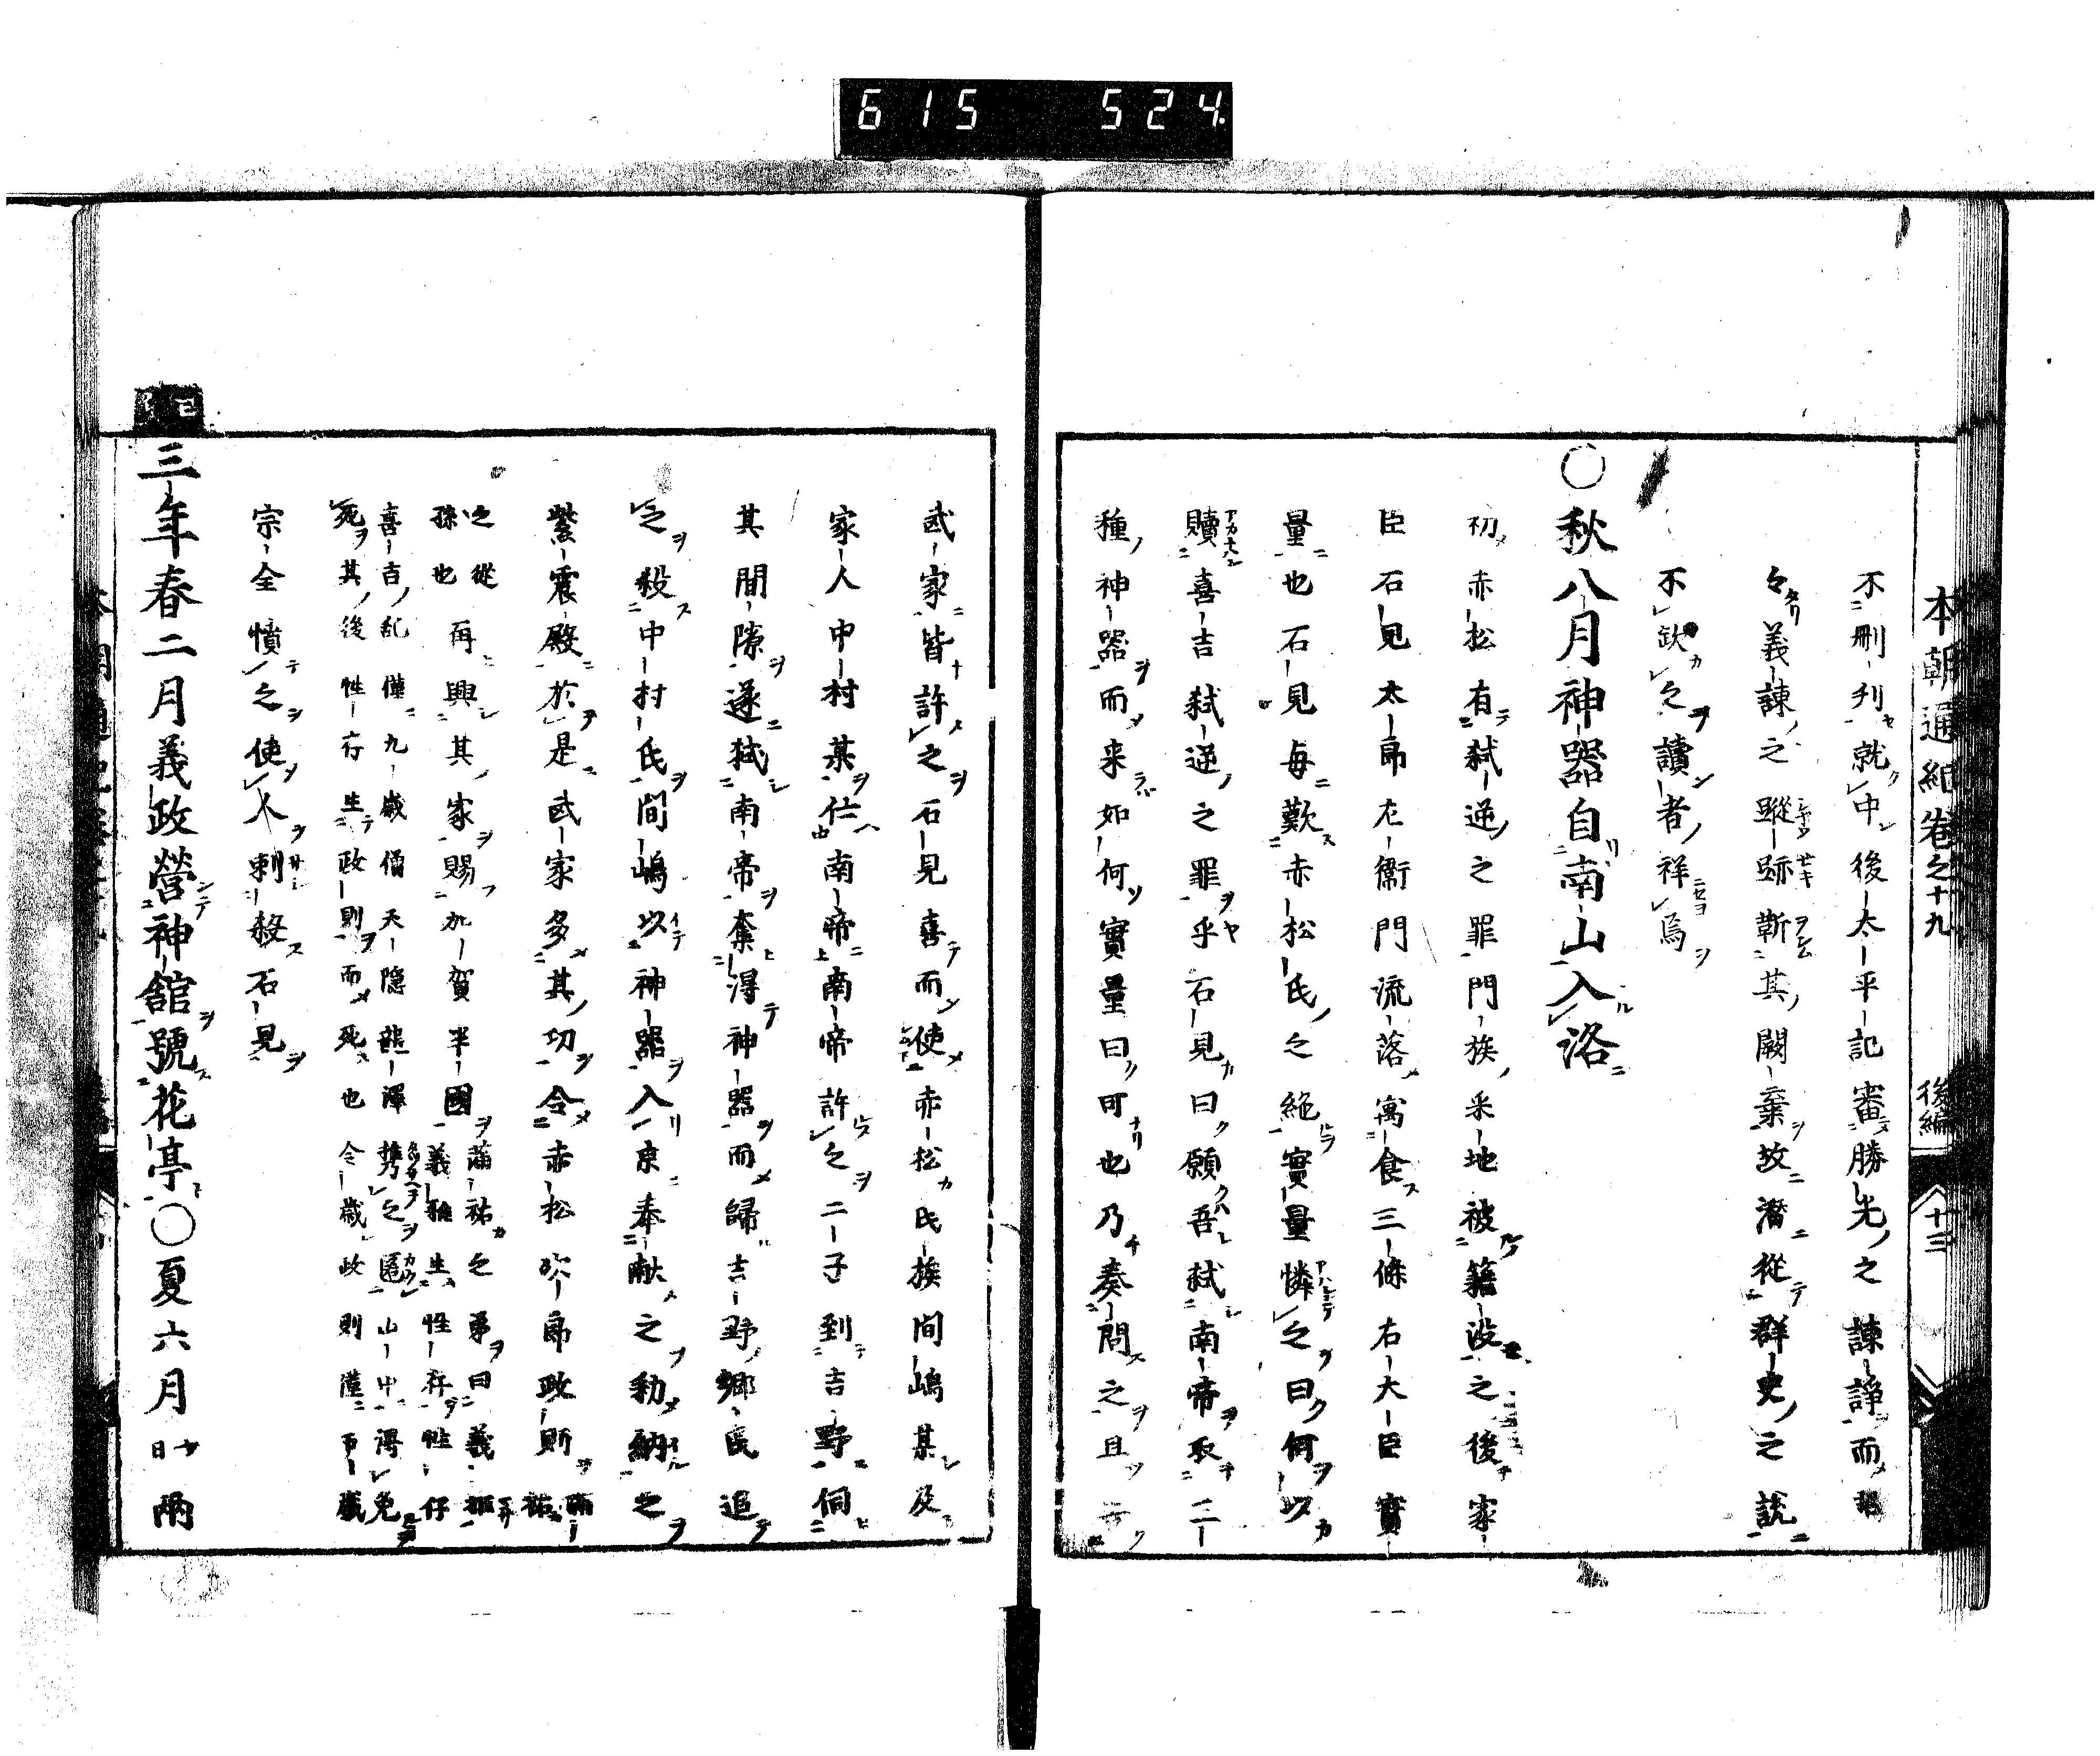 615 524.
本朝通紀巻之十九 後編 十三
不刪刋就中後太平記審勝先之諫諍而
々義諫之蹤跡斬其闕棄故潛從群史之説
不欽之讀者祥焉
〇秋八月神器自南山入洛
初赤松有弑逆之罪門族采地被籍没之後家
臣石見太郎左衞門流落寓食三條右大臣實
量也石見毎歎赤松氏之絶實量憐之曰何以
贖喜吉弑逆之罪乎石見曰願吾弑南帝取二
種神器而来如何實量曰可也乃奏問之且
武家皆許之石見喜而使赤松氏族間嶋某及
家人中村某仕南帝南帝許之二子到吉野伺
其間隙遂弑南帝奪得神器而歸吉野郷民追
之殺中村氏間嶋以神器入京奉献之勅納之
紫震殿於是武家多其功令赤松次郎政則
滿祐之從孫也
再興其家賜加賀半國
滿祐之弟曰義雅義雅生性存性存
喜吉乱僅九歳僧天隱龍澤携之匿山中得免
死其後性存生政則而死也今歳政則僅五歳
宗全憤之使人刺殺石見
三年春二月義政營神舘號花亭〇夏六月廿日雨